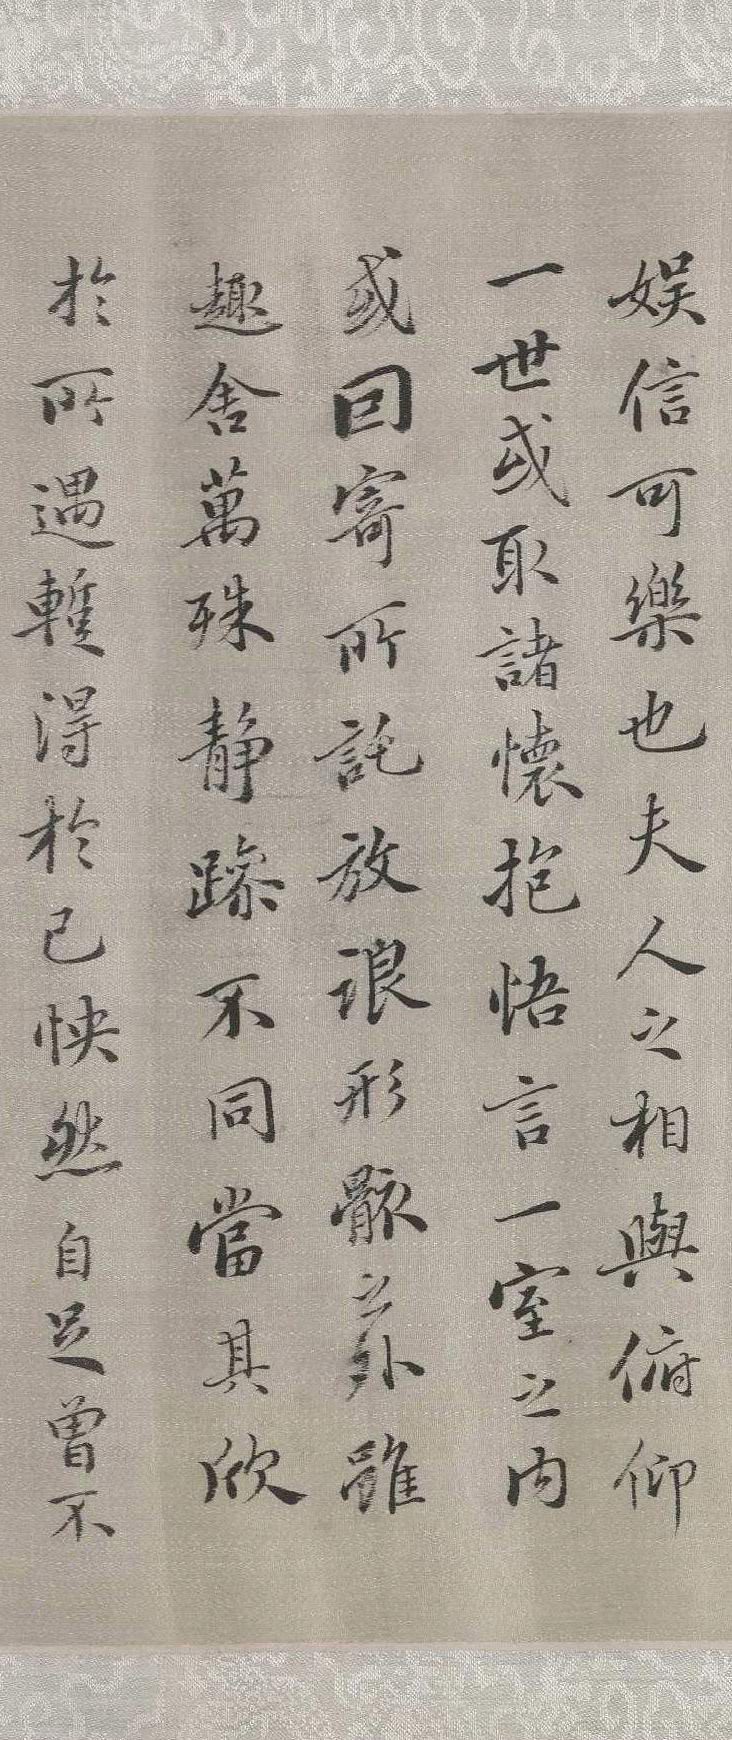 娛信可樂也夫人之相與俯仰
一世或取諸懷抱悟言一室之內
或因寄所託放浪形骸之外雖
趣舍萬殊靜躁不同當其欣
於所遇暫得於己怏然自足曾不